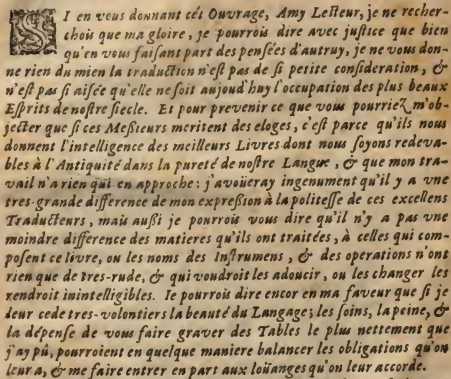 SI en vous donnant cét Ouvrage, Amy Lecteur, je ne recher-
chois que ma gloire, je pourrois dire avec justice que bien
qu'en vous faisant part des pensées d'autruy, je ne vous don-
ne rien du mien la traduction n'est pas de si petite consideration, &
n'est pas si aisée qu'elle ne soit aujourd'huy l'occupation des plus beaux
Esprits de nostre siecle. Et pour prevenir ce que vous pourriez m'ob-
jecter que si ces Messieurs meritent des eloges, c'est parce qu'ils nous
donnent l'intelligence des meilleurs Livres dont nous soyons redeva-
bles à l'Antiquité dans la pureté de nostre Langue, & que mon tra-
vail n'a rien qui en approche: j'avoüeray ingenument qu'il y a vne
tres-grande difference de mon expression à la politesse de ces excellens
Traducteurs, mais aussi je pourrois vous dire qu'il n'y a pas vne
moindre difference des matieres qu'ils ont traitées, à celles qui com-
posent ce livre, ou les noms des Instrumens, & des operations n'ont
rien que de tres-rude, & qui voudroit les adoucir, ou les changer les
rendroit inintelligibles. Ie pourrois dire encor en ma faveur que si je
leur cede tres-volontiers la beauté du Langage; les soins, la peine, &
la dépense de vous faire graver des Tables le plus nettement que
j'ay pû, pourroient en quelque maniere balancer les obligations qu'on
leur a, & me faire entrer en part aux loüanges qu'on leur accorde.